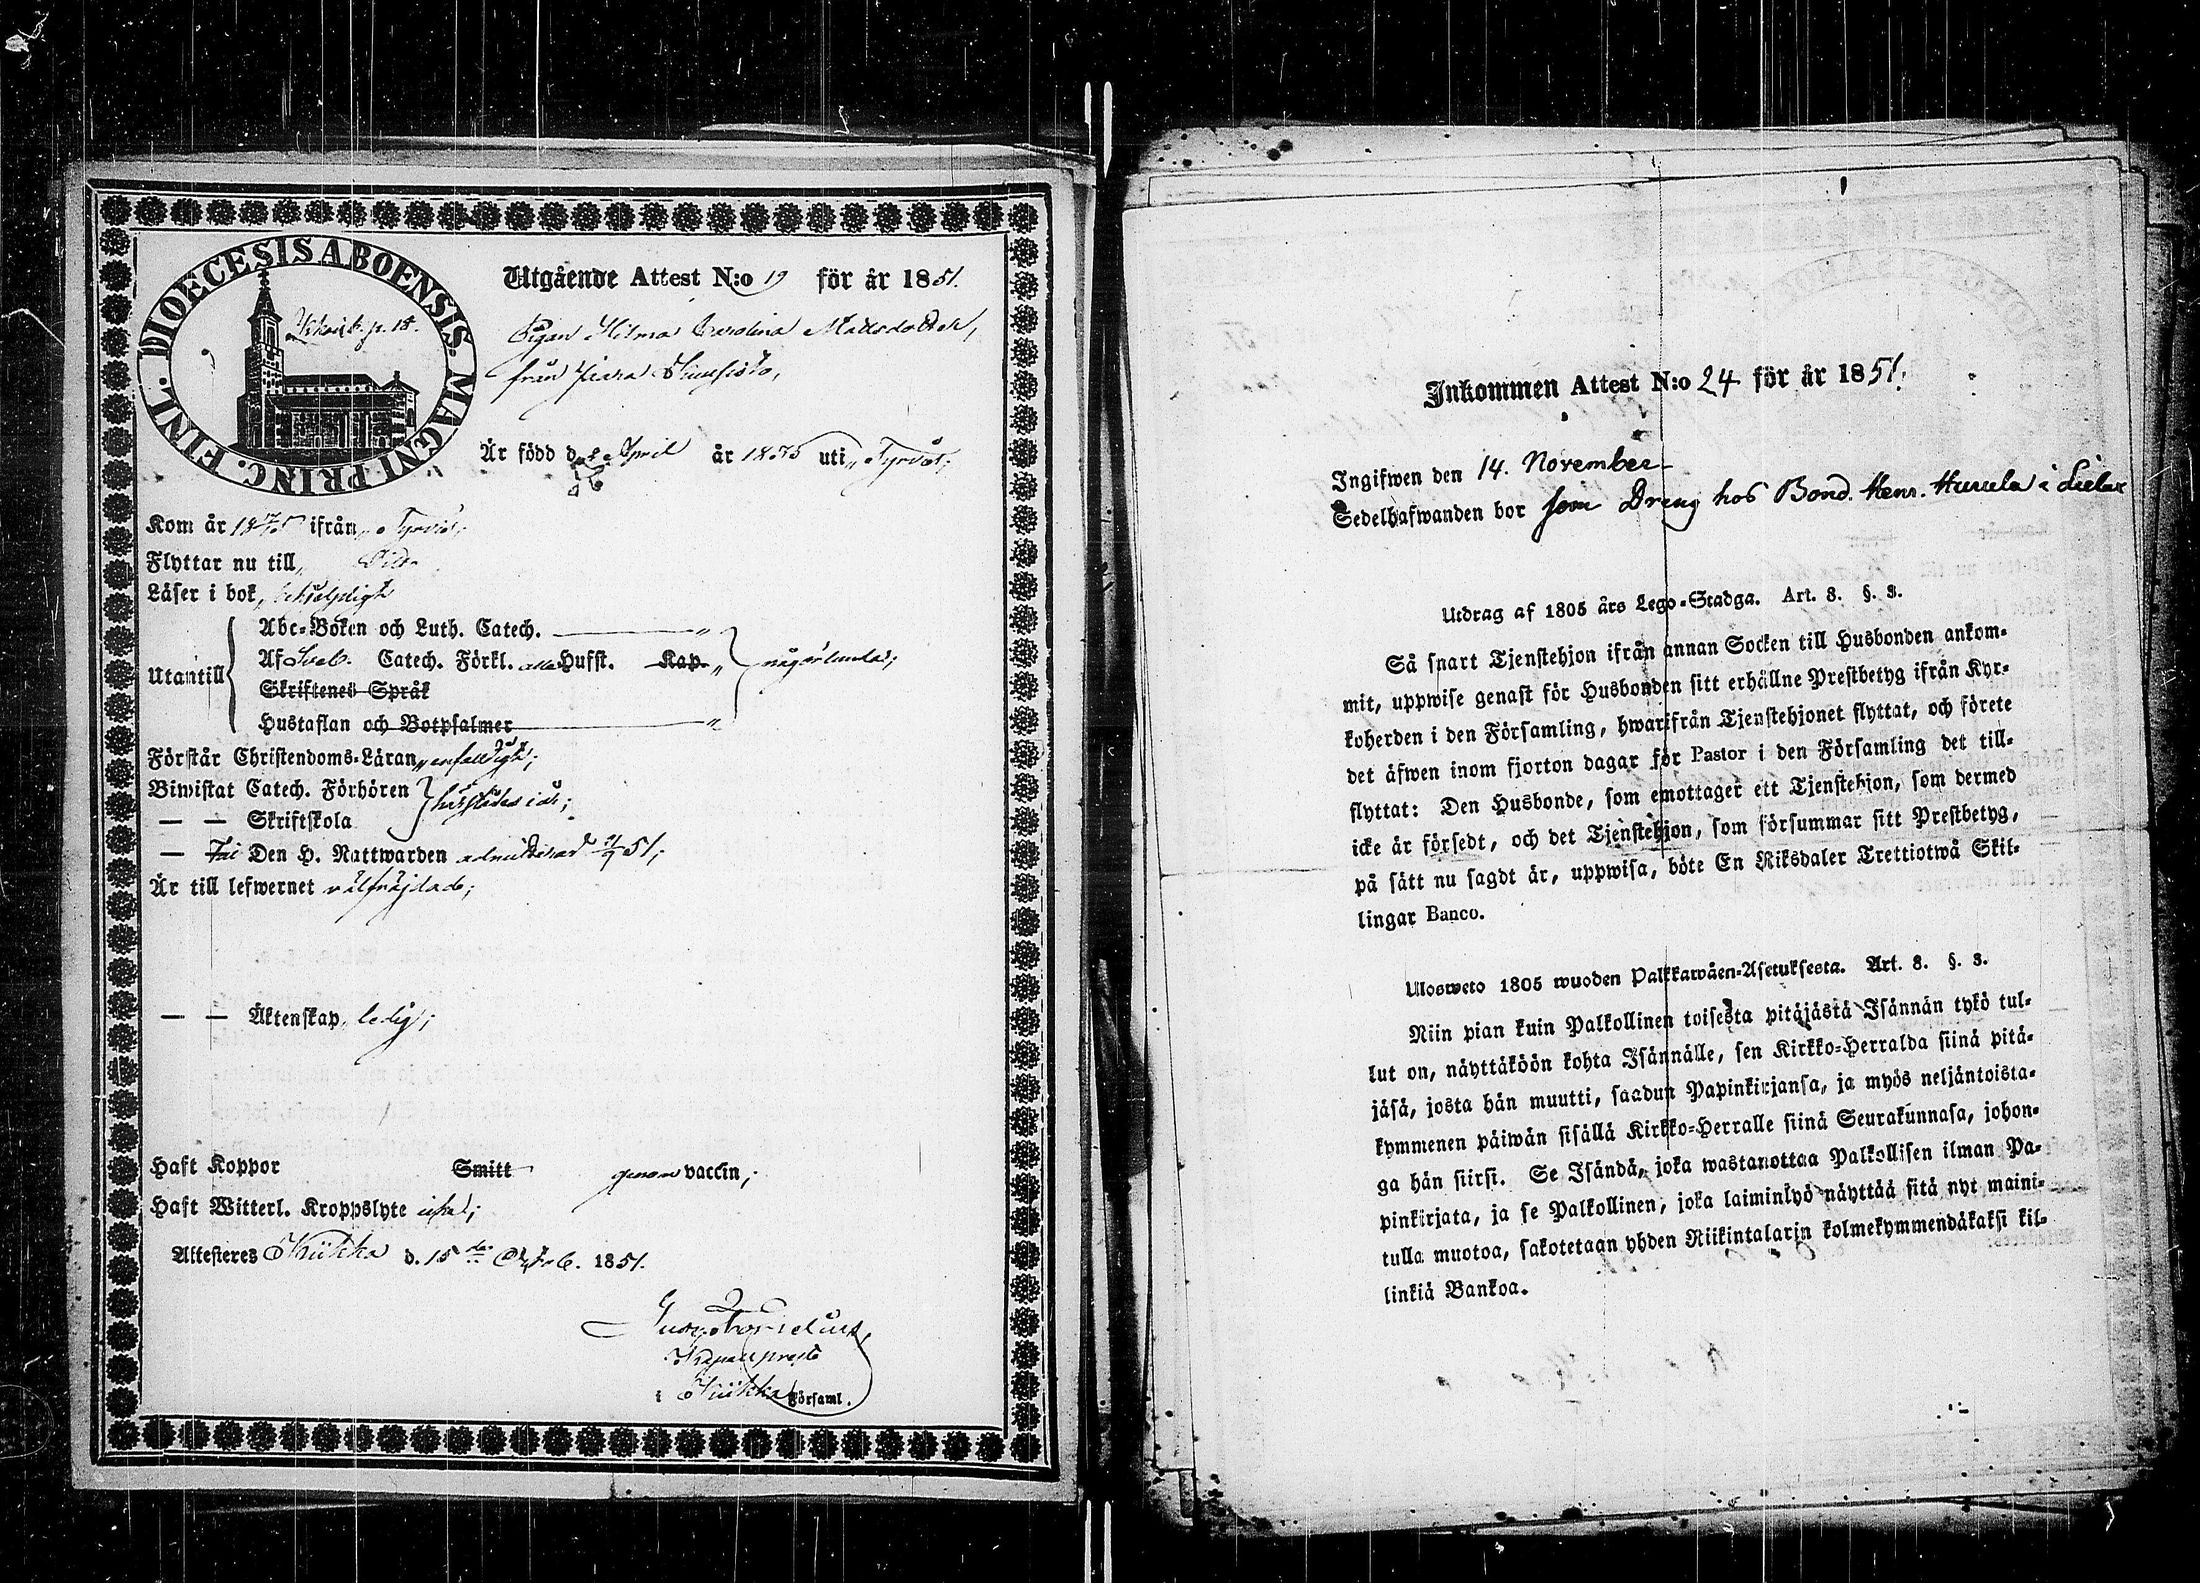 DIOECESIS ABOENSIS. MAGNI PRINC. FINL.
Utgående Attest N:o 19 för år 1851.
Pigan Hilma Carolina Mattsdotter,
från
Är född d. April år 1835 uti Tyrvis;
Kom år 18 ifrån Tyrvis;
Flyttar nu till,
Läser i bok, behjelpligt
Utantill
Abc-Boken och Luth. Catech. — "
Af Sveb. Catech. Förkl. alla Hufst. Kap. " någorlunda;
Skriftenes Språk
Hustaflan och Botpsalmer — "
Förstår Christendoms-Läran, enfaldigt;
Biwistat Catech. Förhören
härstädes i år;
— — Skriftskola
— Till Den H. Nattwarden admitterad 51;
Är till lefwernet välfräjdad;
— — Äktenskap, ledig;
Haft Koppor Smitt genom vaccin;
Haft Witterl. Kroppslyte
Attesteres Kiikka d. 15 Octob. 1851.
Kapell prest
i Kiikka Församl.
Inkommen Attest N:o 24 för år 1851.
Ingifwen den 14. November
Sedelhafwanden bor som Dreng hos Bond. Henr. i
Utdrag af 1805 års Lego-Stadga. Art. 8. §. 3.
Så snart Tjenstehjon ifrån annan Socken till Husbonden ankom-
mit, uppwise genast för Husbonden sitt erhällne Prestbetyg ifrån Kyr-
koherden i den Församling, hwarifrån Tjenstehjonet flyttat, och förete
det äfwen inom fjorton dagar för Pastor i den Församling det till-
flyttat: Den Husbonde, som emottager ett Tjenstehjon, som dermed
icke är försedt, och det Tjenstehjon, som försummar sitt Prestbetyg,
på sätt nu sagdt är, uppwisa, böte En Riksdaler Trettiotwå Skil-
lingar Banco.
Ulosweto 1805 wuoden Palkkawäen-Asetuksesta. Art. 8. §. 3.
Niin pian kuin Palkollinen toisesta pitäjästä Isännän tykö tul-
lut on, näyttäköön kohta Isännälle, sen Kirkko-Herralda siinä pitä-
jäsä, josta hän muutti, saadun Papinkirjansa, ja myös neljäntoista-
kymmenen päiwän sisällä Kirkko-Herralle siinä Seurakunnasa, johon-
ga hän siirsi. Se Isändä, joka wastanottaa Palkollisen ilman Pa-
pinkirjata, ja se Palkollinen, joka laiminlyö näyttää sitä nyt maini-
tulla muotoa, sakotetaan yhden Riikintalarin kolmekymmendäkaksi kil-
linkiä Bankoa.